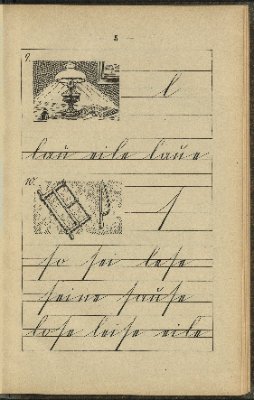 5 —
9.
l
lau eile laue
10.
s
so sei lese
seine sause
lose leise eile